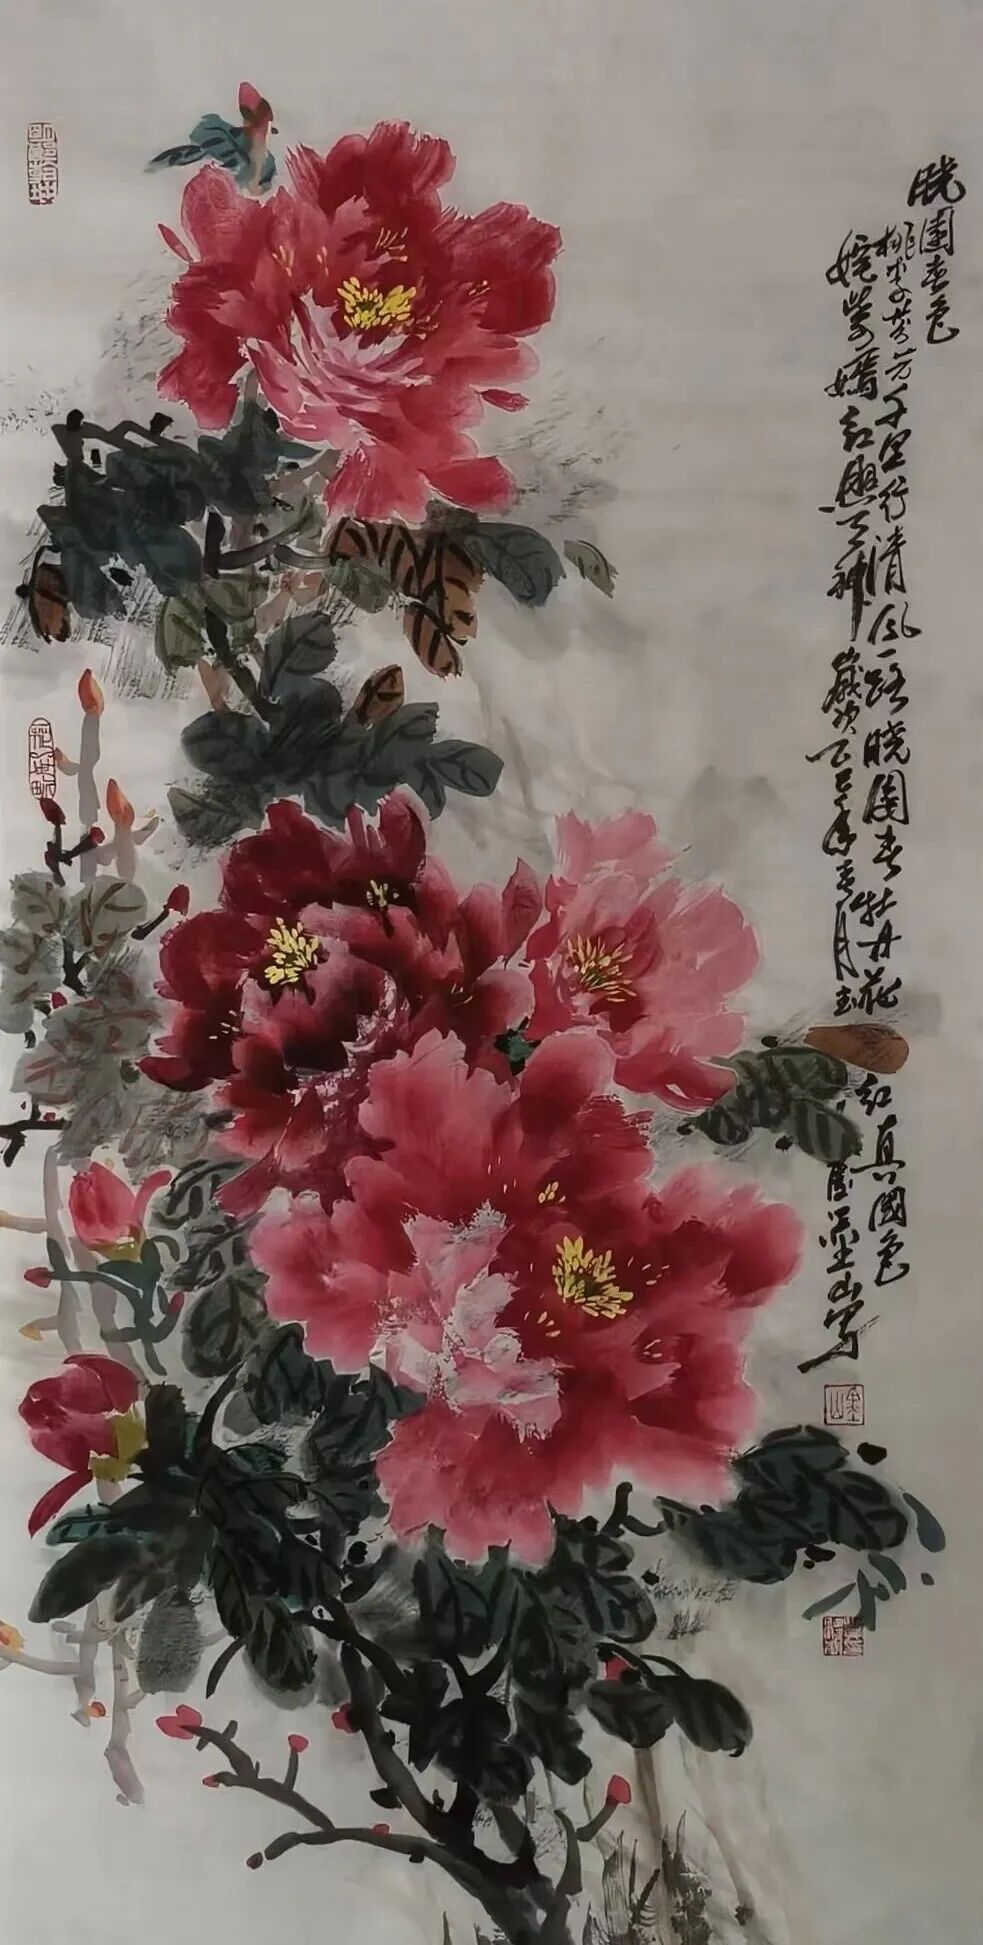 晓園春色
桃李芬芳千里行清風一路晓園春牡丹花红真國色
姹紫嫣红興天神歲次乙巳年春月玉
墨山寫
墨山